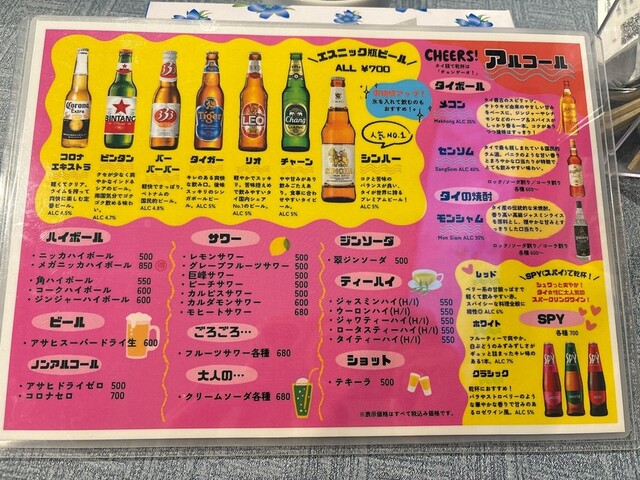 エスニック瓶ビール
ALL ¥700
コロナ
エキストラ
軽くてクリア。
ライムを搾って
爽快に楽しむ定
番ビール。
ALC 4.5%
ビンタン
クセが少なく爽
やかなインドネ
シアのビール。
南国気分でゴク
ゴク飲める味わ
い。
ALC 4.7%
バー
バーバー
軽快でさっぱり。
ベトナムの
国民的ビール。
ALC 4.8%
タイガー
キレのある爽快
な飲み口。後味
スッキリのシンガ
ポールビール。
ALC 5%
リオ
軽やかでスッキ
リ。苦味控えめ
で飲みやすいタ
イ国内シェア
No.1のビール。
ALC 5%
チャーン
やや甘みがあり
飲みごたえあ
り。食事に合わ
せやすいタイビー
ル。
ALC 5%
氷を入れて飲むのも
おすすめ!
人気NO.1
シンハー
コクと苦味の
バランスが良い、
タイが世界に誇る
プレミアムビール!
ALC 5%
CHEERS!
タイ語で乾杯は
「チョンゲーオ!」
アルコール
タイボール
メコン
Mekhong ALC 35%
センソム
SangSom ALC 40%
ロック/ソーダ割り/コーラ割り
各種 600〜
タイの焼酎
モンシャム
Mon Siam ALC 30%
ロック/ソーダ割り
各種 600〜
ハイボール
・ニッカハイボール 500
・メガニッカハイボール 850
・角ハイボール 550
・コークハイボール 600
・ジンジャーハイボール 600
ビール
・アサヒスーパードライ生 600
ノンアルコール
・アサヒドライゼロ 500
・コロナセロ 700
サワー
・レモンサワー 500
・グレープフルーツサワー 500
・巨峰サワー 500
・ピーチサワー 500
・カルピスサワー 500
・カルダモンサワー 500
・モヒートサワー 680
ごろごろ…
・フルーツサワー各種 680
大人の…
・クリームソーダ各種 680
ジンソーダ
・翠ジンソーダ 500
ティーハイ
・ジャスミンハイ(H/I) 550
・ウーロンハイ(H/I) 550
・ジャワティーハイ(H/I) 550
・ロータスティーハイ(H/I) 550
・タイティーハイ(H/I) 550
ショット
・テキーラ 500
※表示価格はすべて税込み価格です。
レッド
ベリー系の甘酸っぱさで
軽くて飲みやすい赤。
スパイシーな料理全般に
相性◎ ALC 6%
ホワイト
フルーティーで爽やか。
白ぶどうのみずみずしさが
ギュッと詰まったキレ味の
ある1本。ALC 7%
クラシック
乾杯におすすめ!
バラやストロベリーのよう
な華やかな香りで甘みのあ
るロゼワイン風。ALC 5%
SPY(スパイ)で乾杯!
シュワっと爽やか!
タイ女性に大人気の
スパークリングワイン!
SPY
各種 700